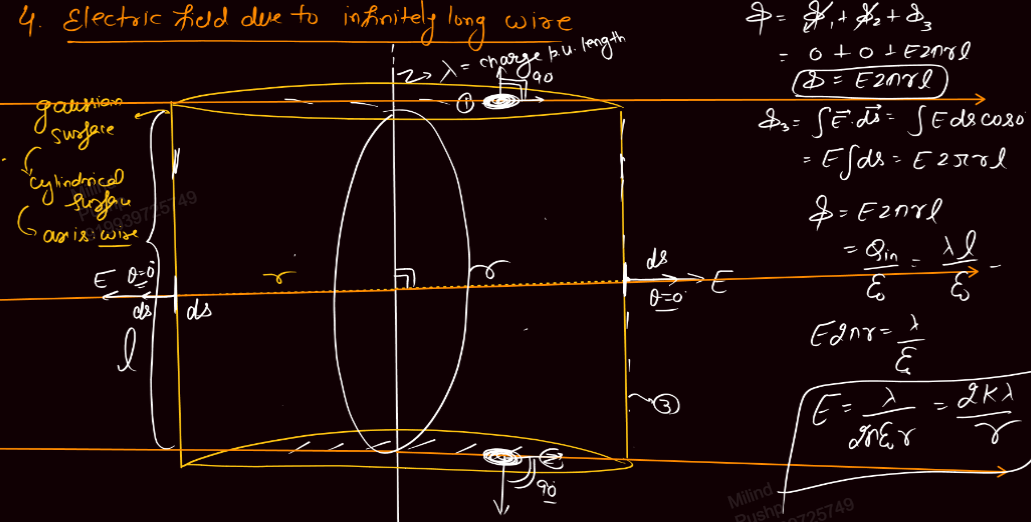 4. Electric field due to infinitely long wire
λ = charge p.u. length
90
①
gaussian
surface
cylindrical
surface
axis: wire
E θ=0°
ds
ds
l
r
r
ds
E
θ=0°
③
E
90
ϕ = ϕ₁ + ϕ₂ + ϕ₃
= 0 + 0 + E2πrl
ϕ = E2πrl
ϕ₃ = ∫E⃗.ds⃗ = ∫E ds cos0
= E∫ds = E 2πrl
ϕ = E2πrl
= Qin/ε₀ = λl/ε₀
E2πr = λ/ε₀
E = λ/2πε₀r = 2Kλ/r
Milind
Pushp
919939725749
Milind
Pushp
9725749